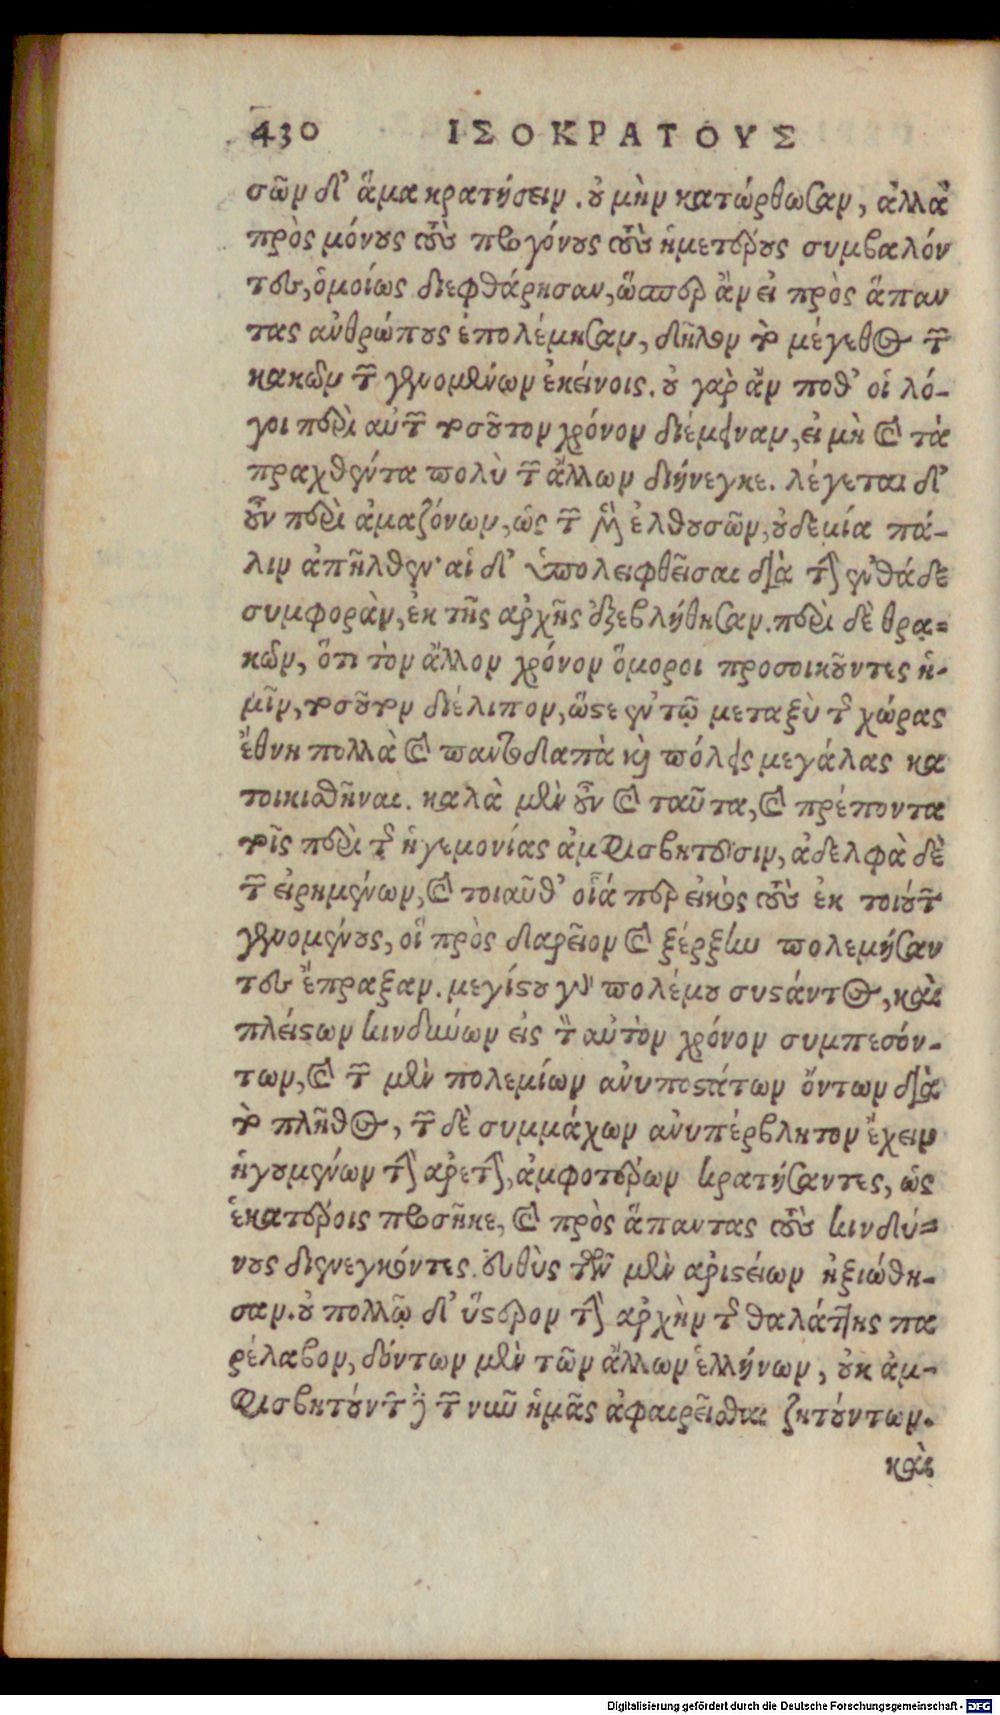 430 ΙΣΟΚΡΑΤΟΥΣ
σῶν δ᾽ ἅμα κρατήσειν. οὐ μὴν κατώρθωσαν, ἀλλὰ
πρὸς μόνους τοὺς προγόνους τοὺς ἡμετέρους συμβαλόν
τες, ὁμοίως διεφθάρησαν, ὥσπερ ἂν εἰ πρὸς ἅπαν
τας ἀνθρώπους ἐπολέμησαν, δῆλον τὸ μέγεθος τῶν
κακῶν τῶν γενομένων ἐκείνοις. οὐ γὰρ ἄν ποθ᾽ οἱ λό-
γοι περὶ αὐτῶν τοσοῦτον χρόνον διέμειναν, εἰ μὴ καὶ τὰ
πραχθέντα πολὺ τῶν ἄλλων διήνεγκε. λέγεται δ᾽
οὖν περὶ ἀμαζόνων, ὡς τῶν μὲν ἐλθουσῶν, οὐδεμία πά-
λιν ἀπῆλθεν· αἱ δ᾽ ὑπολειφθεῖσαι διὰ τὴν ἐνθάδε
συμφορὰν, ἐκ τῆς ἀρχῆς ἐξεβλήθησαν. περὶ δὲ θρα-
κῶν, ὅτι τὸν ἄλλον χρόνον ὅμοροι προσοικοῦντες ἡ-
μῖν, τοσοῦτον διέλιπον, ὥστε ἐν τῷ μεταξὺ τῆς χώρας
ἔθνη πολλὰ καὶ παντοδαπὰ καὶ πόλεις μεγάλας κα
τοικισθῆναι. καλὰ μὲν οὖν καὶ ταῦτα, καὶ πρέποντα
τοῖς περὶ τῆς ἡγεμονίας ἀμφισβητοῦσιν, ἀδελφὰ δὲ
τῶν εἰρημένων, καὶ τοιαῦθ᾽ οἷά περ εἰκὸς τοὺς ἐκ τοιούτων
γενομένους, οἵ πρὸς δαρεῖον καὶ ξέρξην πολεμήσαν
τες ἔπραξαν. μεγίστου γὰρ πολέμου συστάντος, καὶ
πλείστων κινδύνων εἰς τὸν αὐτὸν χρόνον συμπεσόν-
των, καὶ τῶν μὲν πολεμίων ἀνυποστάτων ὄντων διὰ
τὸ πλῆθος, τῶν δὲ συμμάχων ἀνυπέρβλητον ἔχειν
ἡγουμένων τὴν ἀρετὴν, ἀμφοτέρων κρατήσαντες, ὡς
ἑκατέροις προσῆκε, καὶ πρὸς ἅπαντας τοὺς κινδύ-
νους διενεγκόντες. εὐθὺς τῶν μὲν ἀριστείων ἠξιώθη-
σαν. οὐ πολλῷ δ᾽ ὕστερον τὴν ἀρχὴν τῆς θαλάττης πα
ρέλαβον, δόντων μὲν τῶν ἄλλων ἑλλήνων, οὐκ ἀμ-
φισβητούντων δὲ τῶν νῦν ἡμᾶς ἀφαιρεῖσθαι ζητούντων.
καὶ
Digitalisierung gefördert durch die Deutsche Forschungsgemeinschaft - DFG